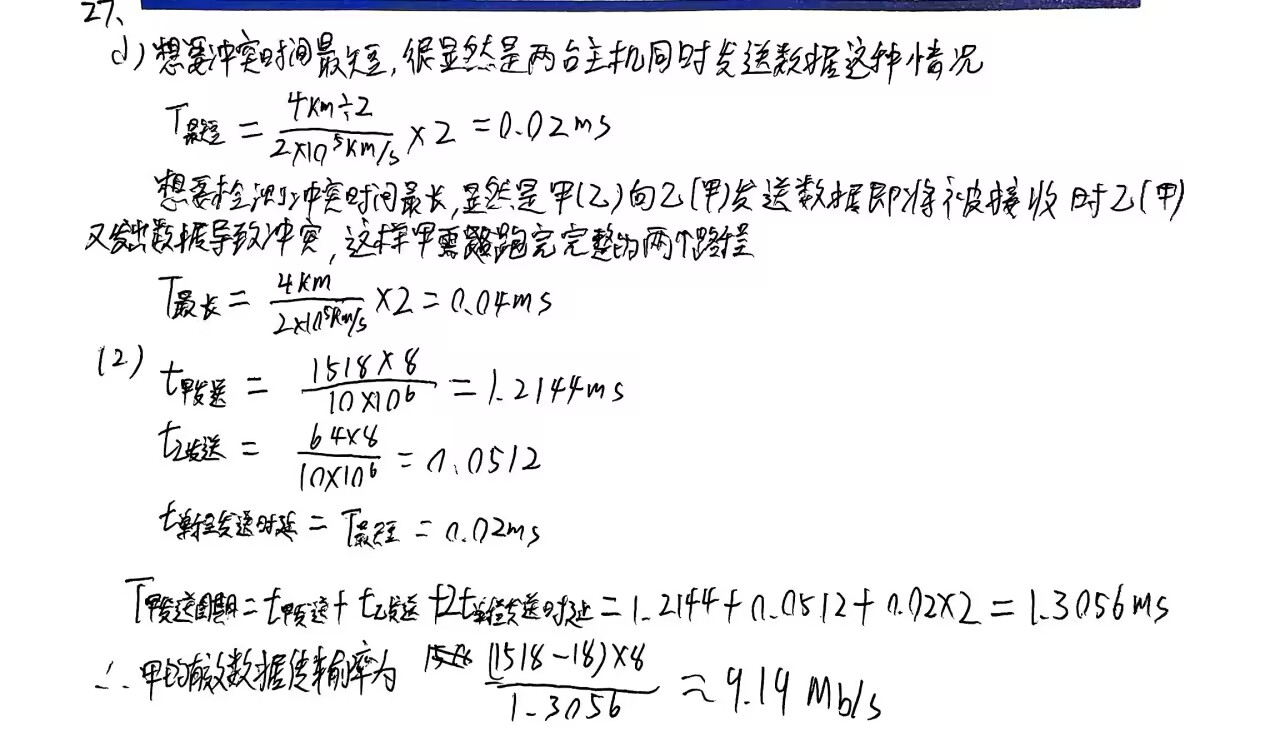 27、
(1) 想要冲突时间最短,很显然是两台主机同时发送数据这种情况
T最短 = 4km÷2 / 2×10^5km/s × 2 = 0.02ms
想要检测到冲突时间最长,显然是甲(乙)向乙(甲)发送数据即将被接收时乙(甲)
又发出数据导致冲突,这样甲需要跑完完整的两个路程
T最长 = 4km / 2×10^5km/s ×2 = 0.04ms
(2) t甲发送 = 1518×8 / 10×10^6 = 1.2144ms
t乙发送 = 64×8 / 10×10^6 = 0.0512
t单程发送时延 = T最短 = 0.02ms
T甲发送周期 = t甲发送 + t乙发送 + 2t单程发送时延 = 1.2144 + 0.0512 + 0.02×2 = 1.3056ms
∴ 甲的有效数据传输率为 (1518-18)×8 / 1.3056 ≈ 9.19 Mb/s